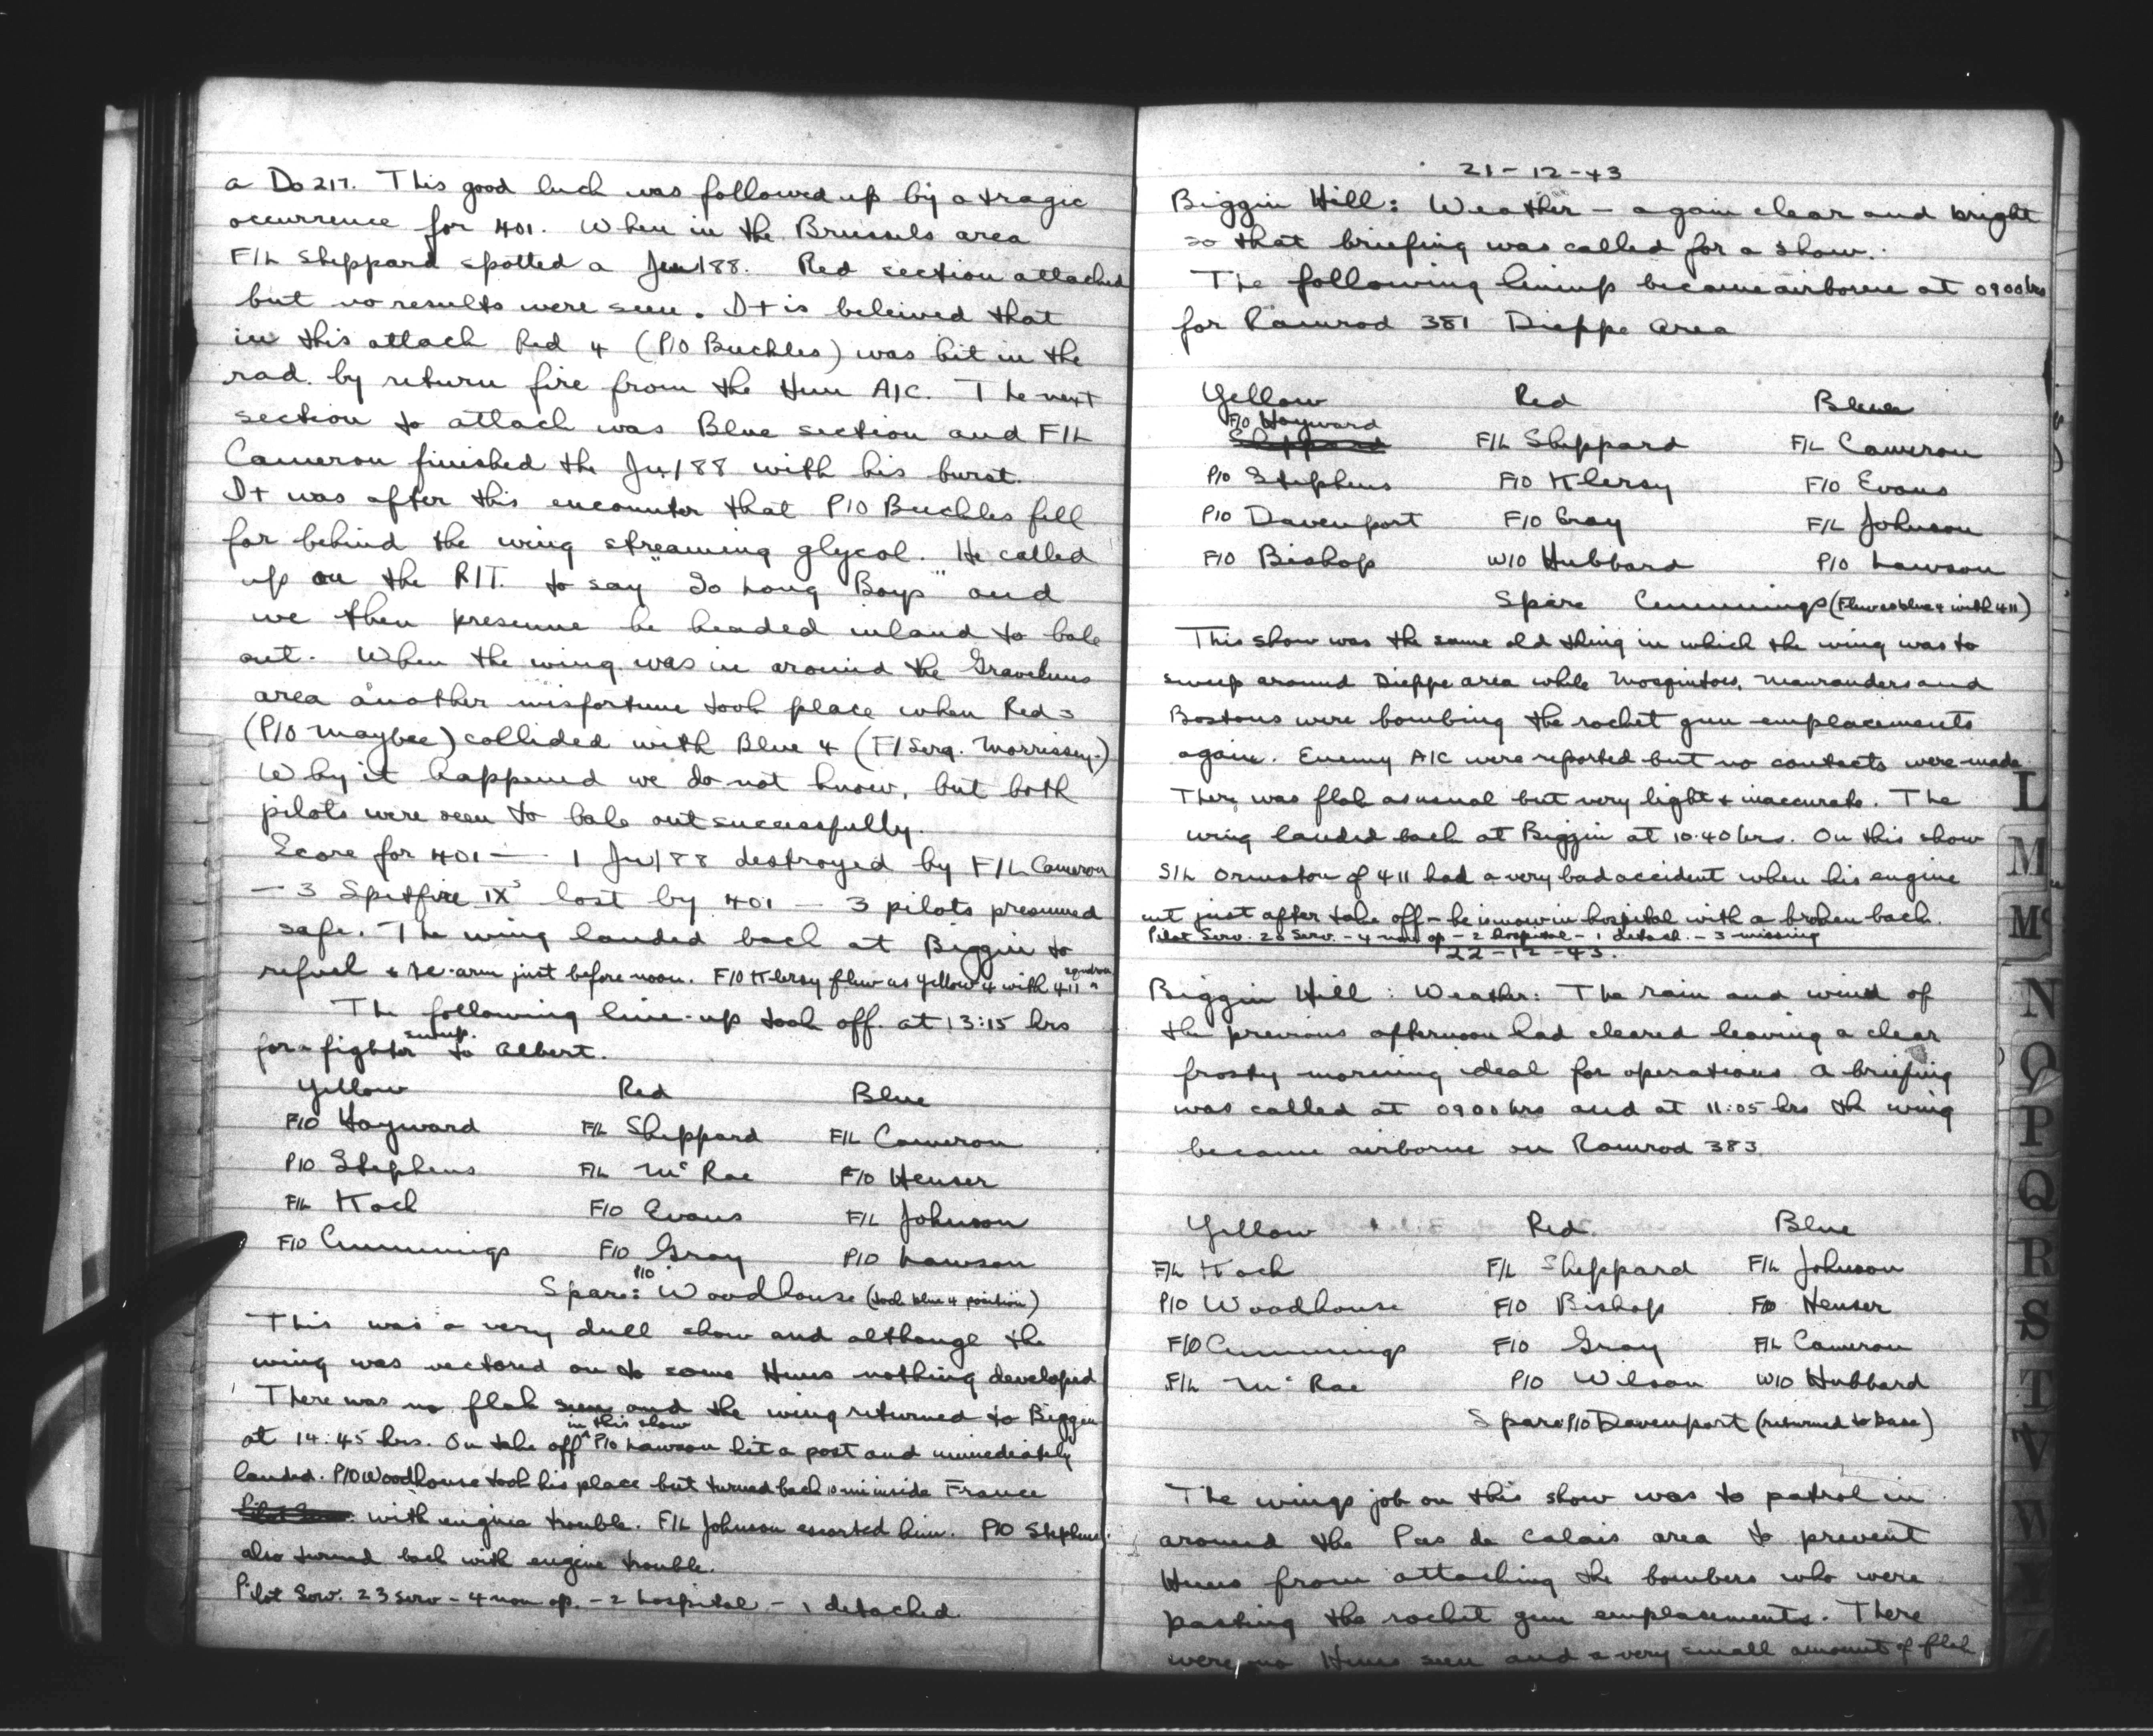 a Do 217. This good luck was followed up by a tragic
occurrence for 401. When in the Brussels area
F/L Sheppard spotted a Ju/88. Red section attacked
but no results were seen. It is beleived that
in this attack Red 4 (P/O Buckles) was hit in the
rad. by return fire from the Hun A/C. The next
section to attack was Blue section and F/L
Cameron finished the Ju/88 with his burst.
It was after this encounter that P/O Buckles fell
far behind the wing streaming glycol. He called
up on the R/T. to say "So Long Boys" and
we then presume he headed inland to bale
out. When the wing was in around the Gravelines
area another misfortune took place when Red 3
(P/O Maybee) collided with Blue 4 (F/Serg. Morrissey.)
Why it happened we do not know, but both
pilots were seen to bale out successfully.
Score for 401 — 1 Ju/88 destroyed by F/L Cameron
— 3 Spitfire IXs lost by 401 — 3 pilots presumed
safe. The wing landed back at Biggin to
refuel & re-arm just before noon. F/O Klersy flew as yellow 4 with 411 squadron
The following line-up took off at 13:15 hrs
for a fighter sweep to Albert.
Yellow Red Blue
F/O Hayward F/L Sheppard F/L Cameron
P/O Stephens F/L McRae F/O Heuser
F/L Koch F/O Evans F/L Johnson
F/O Cummings F/O Gray P/O Lawson
Spare: P/O Woodhouse (took blue 4 position)
This was a very dull show and although the
wing was vectored on to some Huns nothing developed
There was no flak seen and the wing returned to Biggin
at 14:45 hrs. On take off in this show P/O Lawson hit a post and immediately
landed. P/O Woodhouse took his place but turned back 10 mi inside France
with engine trouble. F/L Johnson escorted him. P/O Stephens
also turned back with engine trouble.
Pilot Serv. 23 serv - 4 non op. - 2 hospital - 1 detached
21-12-43
Biggin Hill: Weather - again clear and bright
so that briefing was called for a show.
The following lineup became airborne at 0900 hrs
for Ramrod 381 Dieppe Area
Yellow Red Blue
F/O Hayward
Sheppard F/L Sheppard F/L Cameron
P/O Stephens F/O Klersy F/O Evans
P/O Davenport F/O Gray F/L Johnson
F/O Bishop W/O Hubbard P/O Lawson
Spare Cummings (Flew as blue 4 with 411)
This show was the same old thing in which the wing was to
sweep around Dieppe area while Mosquitoes, Mauranders and
Bostons were bombing the rocket gun emplacements
again. Enemy A/C were reported but no contacts were made.
There was flak as usual but very light & inaccurate. The
wing landed back at Biggin at 10:40 hrs. On this show
S/L Ormston of 411 had a very bad accident when his engine
cut just after take off - he is now in hospital with a broken back.
Pilot Serv. 23 Serv. - 4 non op - 2 hospital - 1 detach. - 3 missing
22-12-43.
Biggin Hill: Weather: The rain and wind of
the previous afternoon had cleared leaving a clear
frosty morning ideal for operations. A briefing
was called at 0900 hrs and at 11:05 hrs the wing
became airborne on Ramrod 383
Yellow Red Blue
F/L Koch F/L Sheppard F/L Johnson
P/O Woodhouse F/O Bishop F/O Heuser
F/O Cummings F/O Gray F/L Cameron
F/L McRae P/O Wilson W/O Hubbard
Spare P/O Davenport (returned to base)
The wings job on this show was to patrol in
around the Pas de Calais area to prevent
Huns from attacking the bombers who were
pasting the rocket gun emplacements. There
were no Huns seen and a very small amount of flak
L
M
Mc
N
O
P
Q
R
S
T
V
W
Y